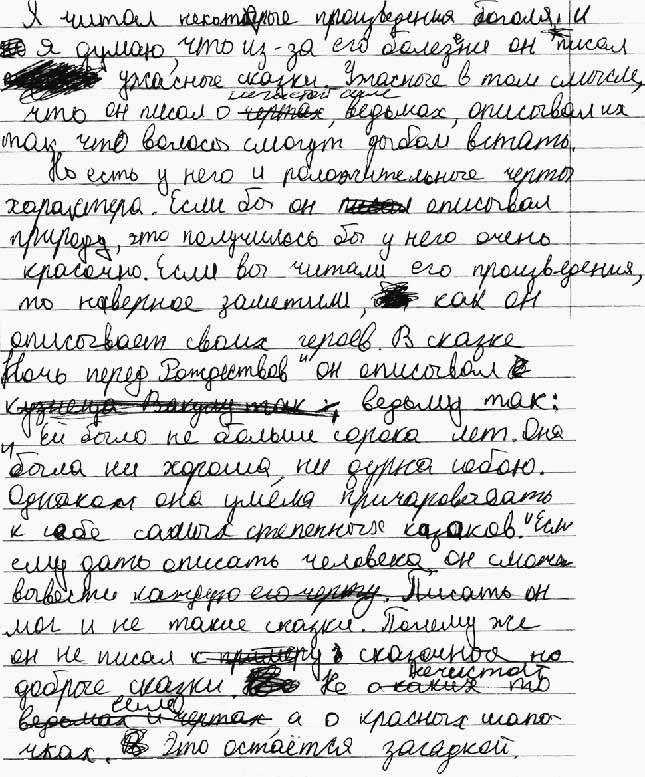 Я читал некоторые произведения Гоголя, и
я думаю, что из-за его болезне он писал
ужасные сказки. Ужасные в том смысле,
нечистой силе
что он писал о чертах, ведьмах, описывал их
так, что волосы смогут дыбом встать.
Но есть у него и положительные черты
характера. Если бы он писал описывал
природу, это получилось бы у него очень
красочно. Если вы читали его произведения,
то наверное заметили, как он
описывает своих героев. В сказке
Ночь перед Рождеством" он описывал
кузнеца Вакулу так, ведьму так:
"Ей было не больше сорока лет. Она
была ни хороша, ни дурна собою.
Однакож она умела причаровывать
к себе самых степенных казаков." Если
ему дать описать человека, он сможет
вывести каждую его черту. Писать он
мог и не такие сказки. Почему же
он не писал к примеру сказочное но
добрые сказки. Не о каких то нечистой
силе
ведьмах и чертах а о красных шапо-
чках. Это остаётся загадкой.